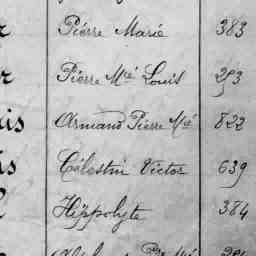 Pierre Marie 383
Pierre Mié Louis 293
is Armand Pierre Mié 822
is Célestin Victor 639
Hippolyte 384